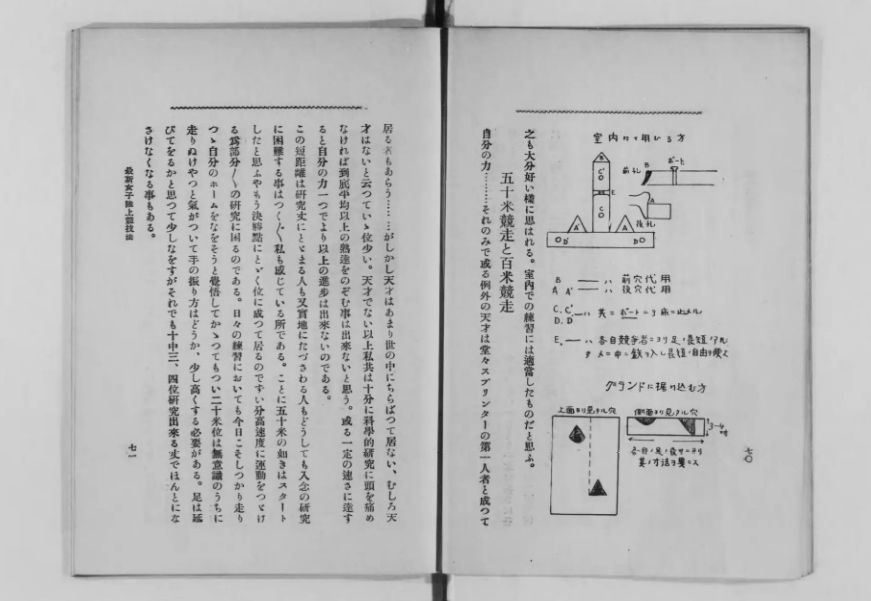 室内にて用ひる方
B
C'
E
C
A'
A
D'
D
前孔
B
ボート
A
後孔
B ―― ハ 前穴代用
A A' ―― ハ 後穴代用
C. C'
D. D' ―ハ 共ニボートニヨリ床ニ止メル
E. ―ハ 各自競争者ニヨリ足ノ長短アル
グランドに掘り込む方
上面ヨリ見タル穴
側面ヨリ見タル穴
3-4
寸
各自ノ足ノ長サニヨリ
其ノ寸法ヲ異ニス
之も大分好い樣に思はれる。室内での練習には適當したものだと思ふ。
五十米競走と百米競走
自分の力………それのみで或る例外の天才は堂々スプリンターの第一人者と成つて
七〇
居る者もあらう……がしかし天才はあまり世の中にちらばつて居ない、むしろ天
才はないと云つていゝ位少い。天才でない以上私共は十分に科學的研究に頭を痛め
なければ到底平均以上の熟達をのぞむ事は出來ないと思う。或る一定の速さに達す
ると自分の力一つでより以上の進步は出來ないのである。
この短距離は研究丈にとゞまる人も又實地にたづさわる人もどうしても入念の研究
に困難する事はつく〴〵私も感じている所である。ことに五十米の如きはスタート
したと思ふやもう決勝點にとゞく位に成つて居るのでずい分高速度に運動をつゞけ
る爲部分〳〵の研究に困るのである。日々の練習においても今日こそしつかり走り
つゝ自分のホームをなをそうと覺悟してかゝつてもつい二十米位は無意識のうちに
走りぬけやつと氣がついて手の振り方はどうか、少し高くする必要がある。足は延
びてをるかと思つて少しなをすがそれでも十中三、四位研究出來る丈でほんとにな
さけなくなる事もある。
最新女子陸上競技法
七一